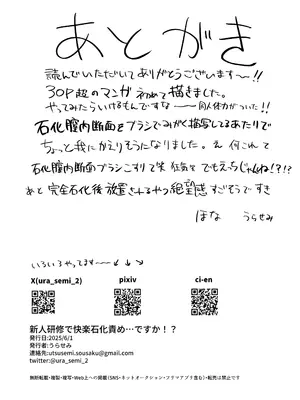 あとがき
読んでいただいてありがとうございます〜!!
30P超のマンガ初めて描きました。
やってみたらいけるもんですな〜同人体力がついた!!
石化膣内断面をブラシでみがく描写してるあたりで
ちょっと我にかえりそうになりました。え 何これ て
石化膣内断面ブラシこすりて笑 狂気を でもえっちじゃんね!?!?
あと 完全石化後放置されるやつ絶望感すごそうですき
ほな うらせみ
いろいろやってます〜
X(ura_semi_2) pixiv ci-en
新人研修で快楽石化責め…ですか!?
発行日:2025/6/1
発行者:うらせみ
連絡先:utsusemi.sousaku@gmail.com
twitter:@ura_semi_2
無断転載・複製・複写・Web上への掲載(SNS・ネットオークション・フリマアプリ含む)・転売は禁止です